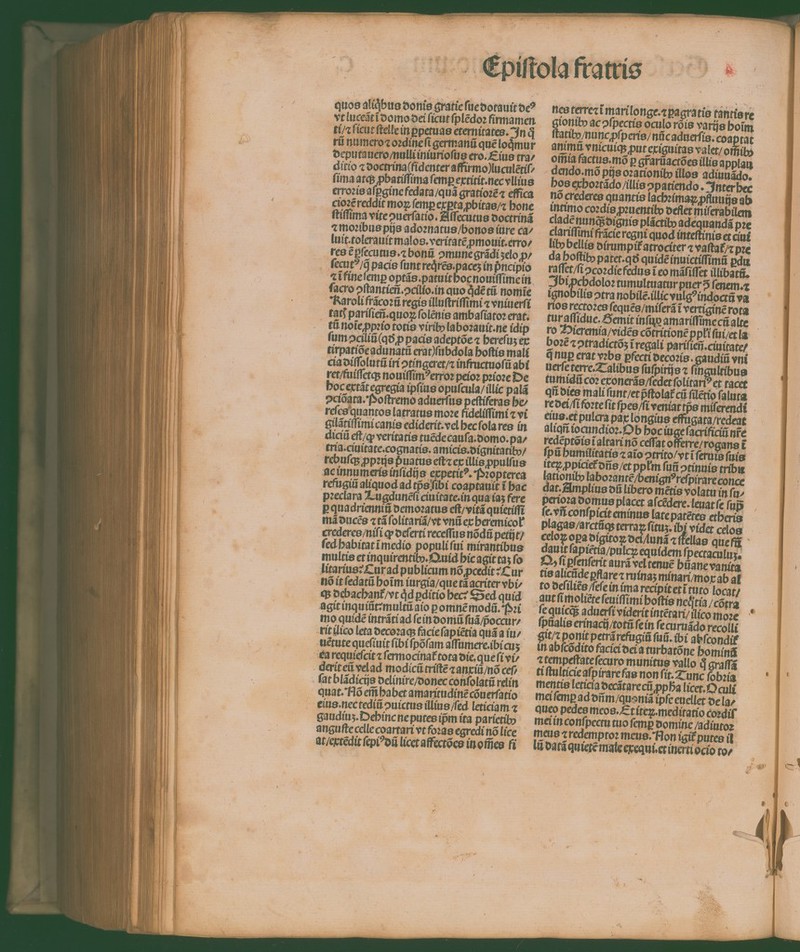 Epiſtola fratris
quos aliq̈bus donis gratie ſue dotauit deꝰ
vt luceāt ī domo dei ſicut ſplēdor firmamen
ti/⁊ ſicut ſtelle in ꝑpetuas eternitates. In q̄
rū numero ⁊ ordine ſi germanū quē loq̄mur
deputauero/nulli iniurioſus ero. Eius tra/
ditio ⁊ doctrina(fidenter affirmo)luculētiſ/
ſima atqꝫ ꝓbatiſſima ſemꝑ extitit. nec vllius
erroris aſꝑgine fedata/quā gratiorē ⁊ effica
ciorē reddit moꝝ ſemꝑ exꝑta ꝓbitas/⁊ hone
ſtiſſima vite ↄuerſatio. Aſſecutus doctrinā
⁊ moribus pijs adornatus/bonos iure ca/
luit. tolerauit malos. veritatē ꝓmouit. erro/
res ē ꝑſecutus. ⁊ bonū ↄmune grādi zelo ꝓ/
ſecutꝰ/q̄ pacis ſunt req̄rēs. pacē in p̄ncipio
⁊ ī fine ſemꝑ optās. patuit hoc nouiſſime in
ſacro ↄſtantieñ. ↄcilio. in quo q̄dē tū nomīe
Karoli frācoꝝ regis illuſtriſſimi ⁊ vniuerſi
tatꝭ pariſieñ. quoꝝ ſolēnis ambaſiator erat.
tū noīe ꝓprio totis viribꝰ laborauit. ne idip
ſum ↄciliū(qđ ꝓ pacis adeptōe ⁊ hereſuꝫ ex
tirpatiōe adunatū erat)ſubdola hoſtis mali
cia diſſolutū iri ↄtingeret/⁊ infructuoſū abi
ret/fuiſſetqꝫ nouiſſimꝰ error peior priore De
hoc extāt egregia ipſius opuſcula/illic palā
ↄcionata. Poſtremo aduerſus peſtiferas he/
reſes quantos latratus more fideliſſimi ⁊ vi
gilātiſſimi canis ediderit. vel hec ſola res in
diciū eſt/ꝙ veritatis tuēde cauſa. domo. pa/
tria. ciuitate. cognatis. amicis. dignitatibꝰ/
rebuſqꝫ ꝓprijs p̄uatus eſt ⁊ ex illis ꝓpulſus
ac innumeris inſidijs expetitꝰ. Propterea
refugiū aliquod ad tp̄s ſibi coaptauit ī hac
preclara Lugdunēſi ciuitate. in qua iaꝫ fere
ꝑ quadrienniū demoratus eſt/vitā quietiſſi
mā ducēs ⁊ tā ſolitariā/vt vnū ex heremicol̓
crederes/niſi ꝙ deſerti receſſus nōdū petijt/
ſed habitat ī medio populi ſui mirantibus
multis et inquirentibꝰ. Quid hic agit taꝫ ſo
litarius: Cur ad publicum nō ꝓcedit: Cur
nō it ſedatū hoīm iurgia/que tā acriter vbi/
qꝫ debachant̄/vt q̇d ꝑditio hec: Sed quid
agit inquiūt: multū aio ꝑ omnē modū. Pri
mo quidē intrāti ad ſe in domū ſuā/p̄occur/
rit ilico leta decoraqꝫ facie ſapiētia quā a iu/
uētute queſiuit ſibi ſpōſam aſſumere. ibi cuꝫ
ea requieſcit ⁊ ſermocinat̄ tota die. que ſi vi/
derit eū vel ad modicū triſtē ⁊ anxiū/nō ceſ/
ſat blādicijs delinire/donec conſolatū relin
quat. Nō em̄ habet amaritudinē cōuerſatio
eius. nec tediū ↄuictus illius/ſed leticiam ⁊
gaudiuꝫ. Dehinc ne putes ip̄m ita parietibꝰ
anguſte celle coartari vt foras egredi nō lice
at/extēdit ſepiꝰ dū licet affectōes in om̄es fi
nes terre ⁊ ī mari longe. ⁊ ꝑagratis tantis re
gionibꝰ ac ↄſpectis oculo rōis varijs hoīm
ſtatibꝰ/nunc ꝓſperis/nūc aduerſis. coaptat
animū vnicuiqꝫ. put exiguitas valet/om̄ibꝰ
om̄ia factus. mō ꝑ gr̄aruactōes illis applau
dendo. mō pijs orationibꝰ illos adiuuādo.
hos exhortādo/illis ↄpatiendo. Inter hec
nō crederes quantis lachrimaꝝ ꝓfluuijs ab
intimo cordis ꝓruentibꝰ deflet miſerabilem
cladē nunqꝫ dignis plāctibꝰ adequandā pre
clariſſimi frācie regni quod inteſtinis et ciui
libꝰ bellis dirumpit̄ atrociter ⁊ vaſtat̄/⁊ pre
da hoſtibꝰ patet. qđ quidē inuictiſſimū ꝑdu
raſſet/ſi ↄcordie fedus ī eo māſiſſet illibatū.
Ibi proh dolor tumultuatur puer ↄ̄ ſenem. ⁊
ignobilis ↄtra nobilē. illic vulgꝰ indoctū va
rios rectores ſequēs/miſerā ī vertiginē rota
tur aſſidue. Gemit inſuꝑ amariſſime cū alte
ro Hieremia/vidēs cōtritionē ppl̓i ſui/et la
borē ⁊ ↄtradictōꝫ ī regali pariſieñ. ciuitate/
q̄ nuꝑ erat vrbs ꝑfecti decoris. gaudiū vni
uerſe terre. Talibus ſuſpirijs ⁊ ſingultibus
tumidū cor exonerās/ſedet ſolitariꝰ et tacet
qn̄ dies mali ſunt/et p̄ſtolat̄ cū ſilētio ſaluta
re dei/ſi forte ſit ſpes/ſi veniat tp̄s miſerendi
eius. et pulcra pax longius effugata/redeat
aliqn̄ iocundior. Ob hoc iuge ſacrificiū nr̄e
redēptōis ī altari nō ceſſat offerre/rogans ī
ſpū humilitatis ⁊ aīo ↄtrito/vt ī ſeruis ſuis
iteꝝ ꝓpiciet̄ dn̄s/et ppl̓m ſuū ↄtinuis tribu
lationibꝰ laborantē/benignꝰ reſpirare conce
dat. Amplius dū libero mētis volatu in ſu/
periora domus placet aſcēdere. leuat ſe ſuꝑ
ſe. vn̄ conſpicit eminus late patētes etheris
plagas/arctūqꝫ terraꝝ ſituꝫ. ibi videt celos
celoꝝ oꝑa digitoꝝ dei/lunā ⁊ ſtellas que fū
dauit ſapiētia/pulcꝝ equidem ſpectaculuꝫ.
Qꝫ ſi ꝑſenſerit aurā vel tenuē hūane vanita
tis alicūde ꝑflare ⁊ ruinaꝫ minari/mox ab al̓
to deſiliēs/ſeſe in ima recipit et ī tuto locat/
aut ſi moliēte ſeuiſſimi hoſtis neq̄tia/cōtra
ſe quicqꝫ aduerſi viderit intētari/ilico more
ſpūalis erinacij/totū ſe in ſe curuādo recolli
git/⁊ ponit petrā refugiū ſuū. ibi abſcondit̄
in abſcōdito faciei dei a turbatōne hominū
⁊ tempeſtate ſecuro munitus vallo q̄ graſſā
ti ſtulticie aſpirare fas non ſit. Tunc ſobria
mentis leticia decātare cū ꝓpha licet. Oculi
mei ſemꝑ ad dn̄m/quoniā ipſe euellet de la/
queo pedes meos. Et iteꝝ. meditatio cordiſ
mei in conſpectu tuo ſemꝑ domine/adiutor
meus ⁊ redemptor meus. Non igit̄ putes il
lū datā quietē male exequi. et inerti ocio tor/